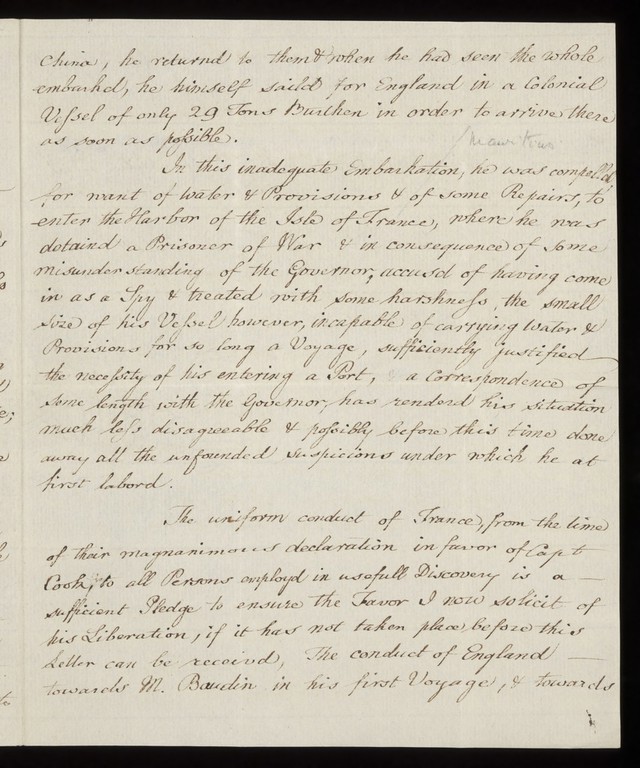 China, he returnd to them & when he had seen the whole
embarkd, he himself saild for England in a Colonial
Vessel of only 29 Tons Burthen in order to arrive there
as soon as possible.
/Mauritius.
In this inadequate Embarkation, he was compelld
for want of water & Provisions & of some Repairs, to
enter the Harbor of the Isle of France, where he was
detaind a Prisoner of War & in consequence of some
misunderstanding of the Governor, accusd of having come
in as a Spy & treated with some harshness, the small
size of his Vessel however, incapable of carrying water &
Provisions for so long a Voyage, sufficiently justified
the necessity of his entering a Port, & a Correspondence of
some length with the Governor, has renderd his situation
much less disagreeable & possibly before this time done
away all the unfounded suspicions under which he at
first labord.
The uniform conduct of France, from the time
of their magnanimous declaration in favor of Capt
Cook, to all Persons employd in usefull Discovery is a —
sufficient Pledge to ensure the Favor I now solicit of
his Liberation, if it has not taken place, before this
Letter can be receivd, The conduct of England —
towards M. Baudin in his first Voyage, & towards